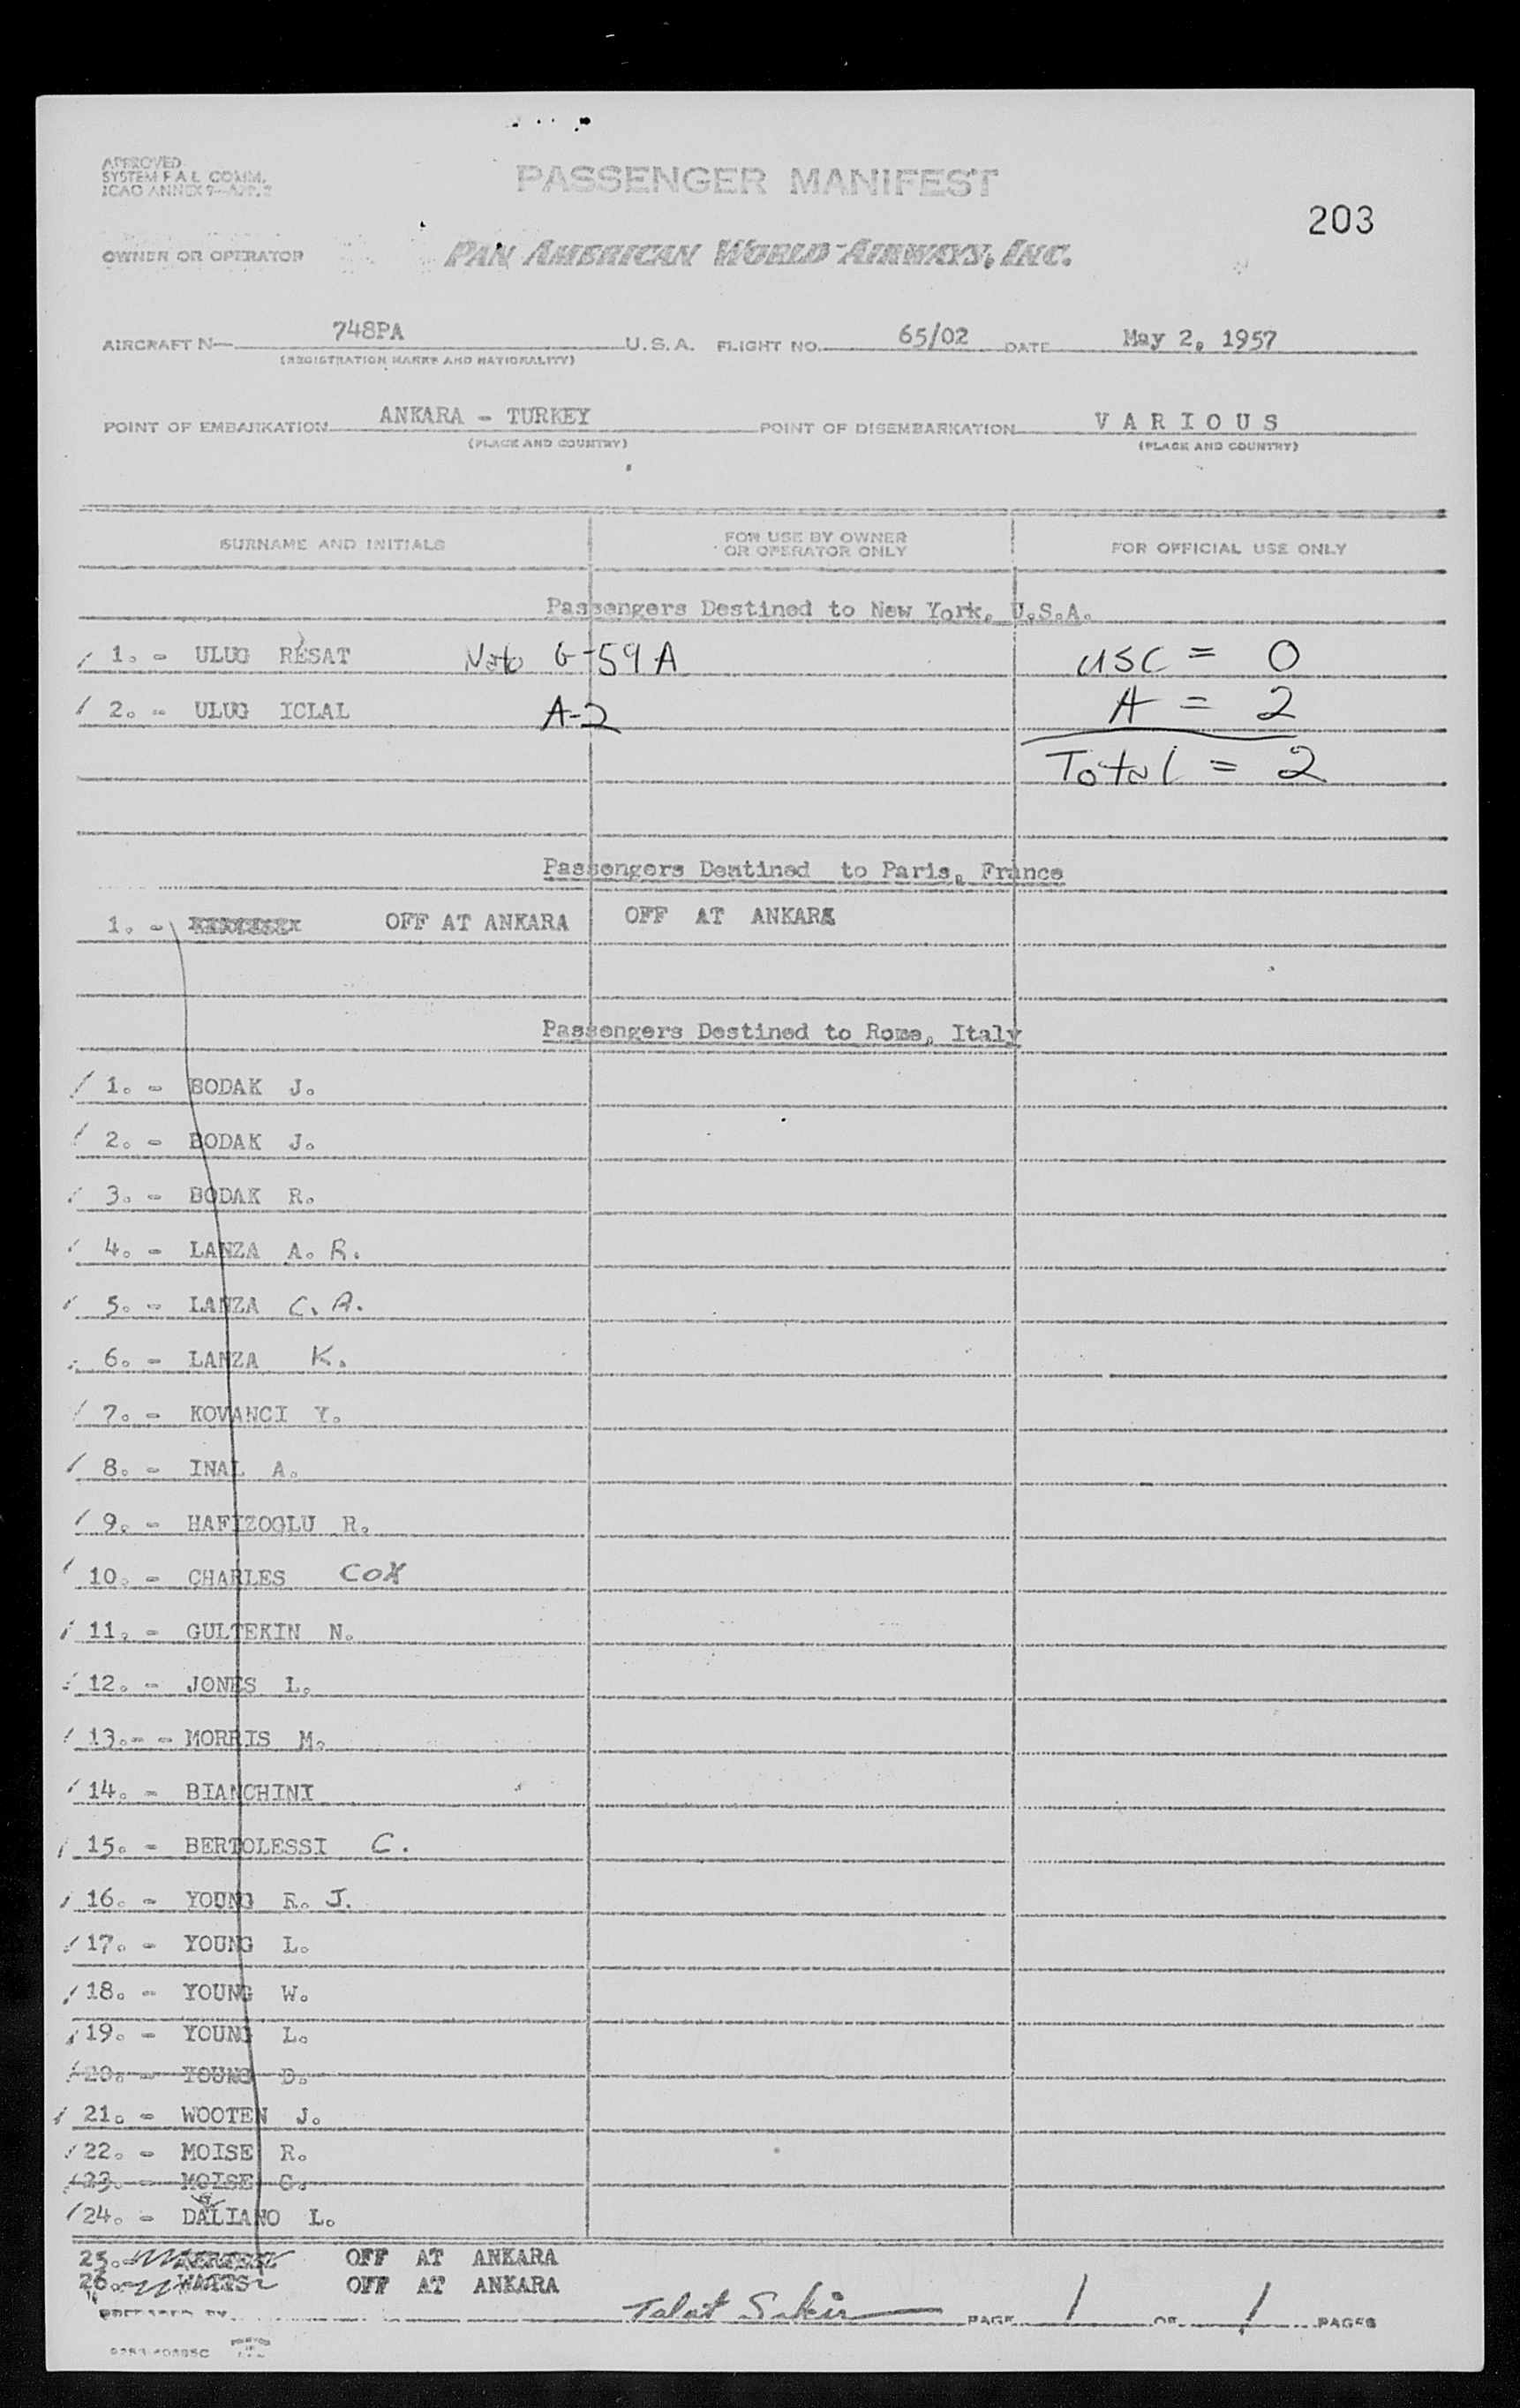 APPROVED
SYSTEM F A L COMM.
ICAO ANNEX 9-APP. 2
PASSENGER MANIFEST
203
OWNER OR OPERATOR
PAN AMERICAN WORLD AIRWAYS, INC.
AIRCRAFT N— 748PA U.S.A. FLIGHT NO. 65/02 DATE May 2, 1957
(REGISTRATION MARKS AND NATIONALITY)
POINT OF EMBARKATION ANKARA - TURKEY POINT OF DISEMBARKATION V A R I O U S
(PLACE AND COUNTRY) (PLACE AND COUNTRY)
SURNAME AND INITIALS FOR USE BY OWNER OR OPERATOR ONLY FOR OFFICIAL USE ONLY
Passengers Destined to New York, U.S.A.
/ 1. - ULUG RESAT Nato G-59A USC = 0
/ 2. - ULUG ICLAL A-2 A = 2
Total = 2
Passengers Destined to Paris, France
1. - OFF AT ANKARA OFF AT ANKARA
Passengers Destined to Rome, Italy
/ 1. - BODAK J.
/ 2. - BODAK J.
/ 3. - BODAK R.
/ 4. - LANZA A. R.
/ 5. - LANZA C. A.
/ 6. - LANZA K.
/ 7. - KOVANCI Y.
/ 8. - INAL A.
/ 9. - HAFIZOGLU R.
/ 10. - CHARLES COX
/ 11. - GULTEKIN N.
/ 12. - JONES L.
/ 13.- - MORRIS M.
/ 14. - BIANCHINI
/ 15. - BERTOLESSI C.
/ 16. - YOUNG R. J.
/ 17. - YOUNG L.
/ 18. - YOUNG W.
/ 19. - YOUNG L.
/ 20. - YOUNG D.
/ 21. - WOOTEN J.
/ 22. - MOISE R.
/ 23. - MOISE G.
/ 24. - DALIANO L.
25. OFF AT ANKARA
26. WATTS OFF AT ANKARA
PREPARED BY Talat Sakir PAGE 1 OF 1 PAGES